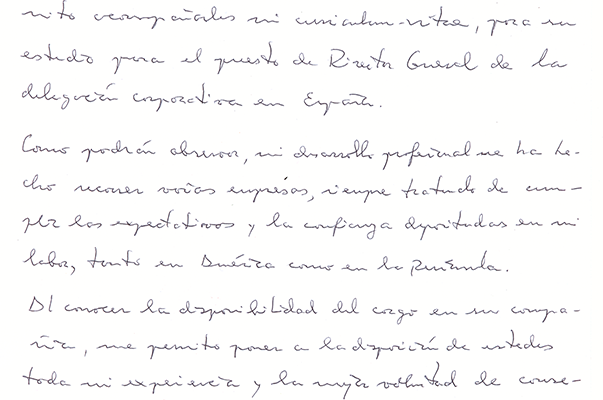 mito acompañarles mi curriculum-vitae, para su
estudio para el puesto de Director General de la
delegación corporativa en España.
Como podrán observar, mi desarrollo profesional me ha he-
cho recorrer varias empresas, siempre tratando de cum-
plir las expectativas y la confianza depositadas en mi
labor, tanto en América como en la Península.
Al conocer la disponibilidad del cargo en su compa-
ñia, me permito poner a la disposición de ustedes
toda mi experiencia y la mejor voluntad de conse-